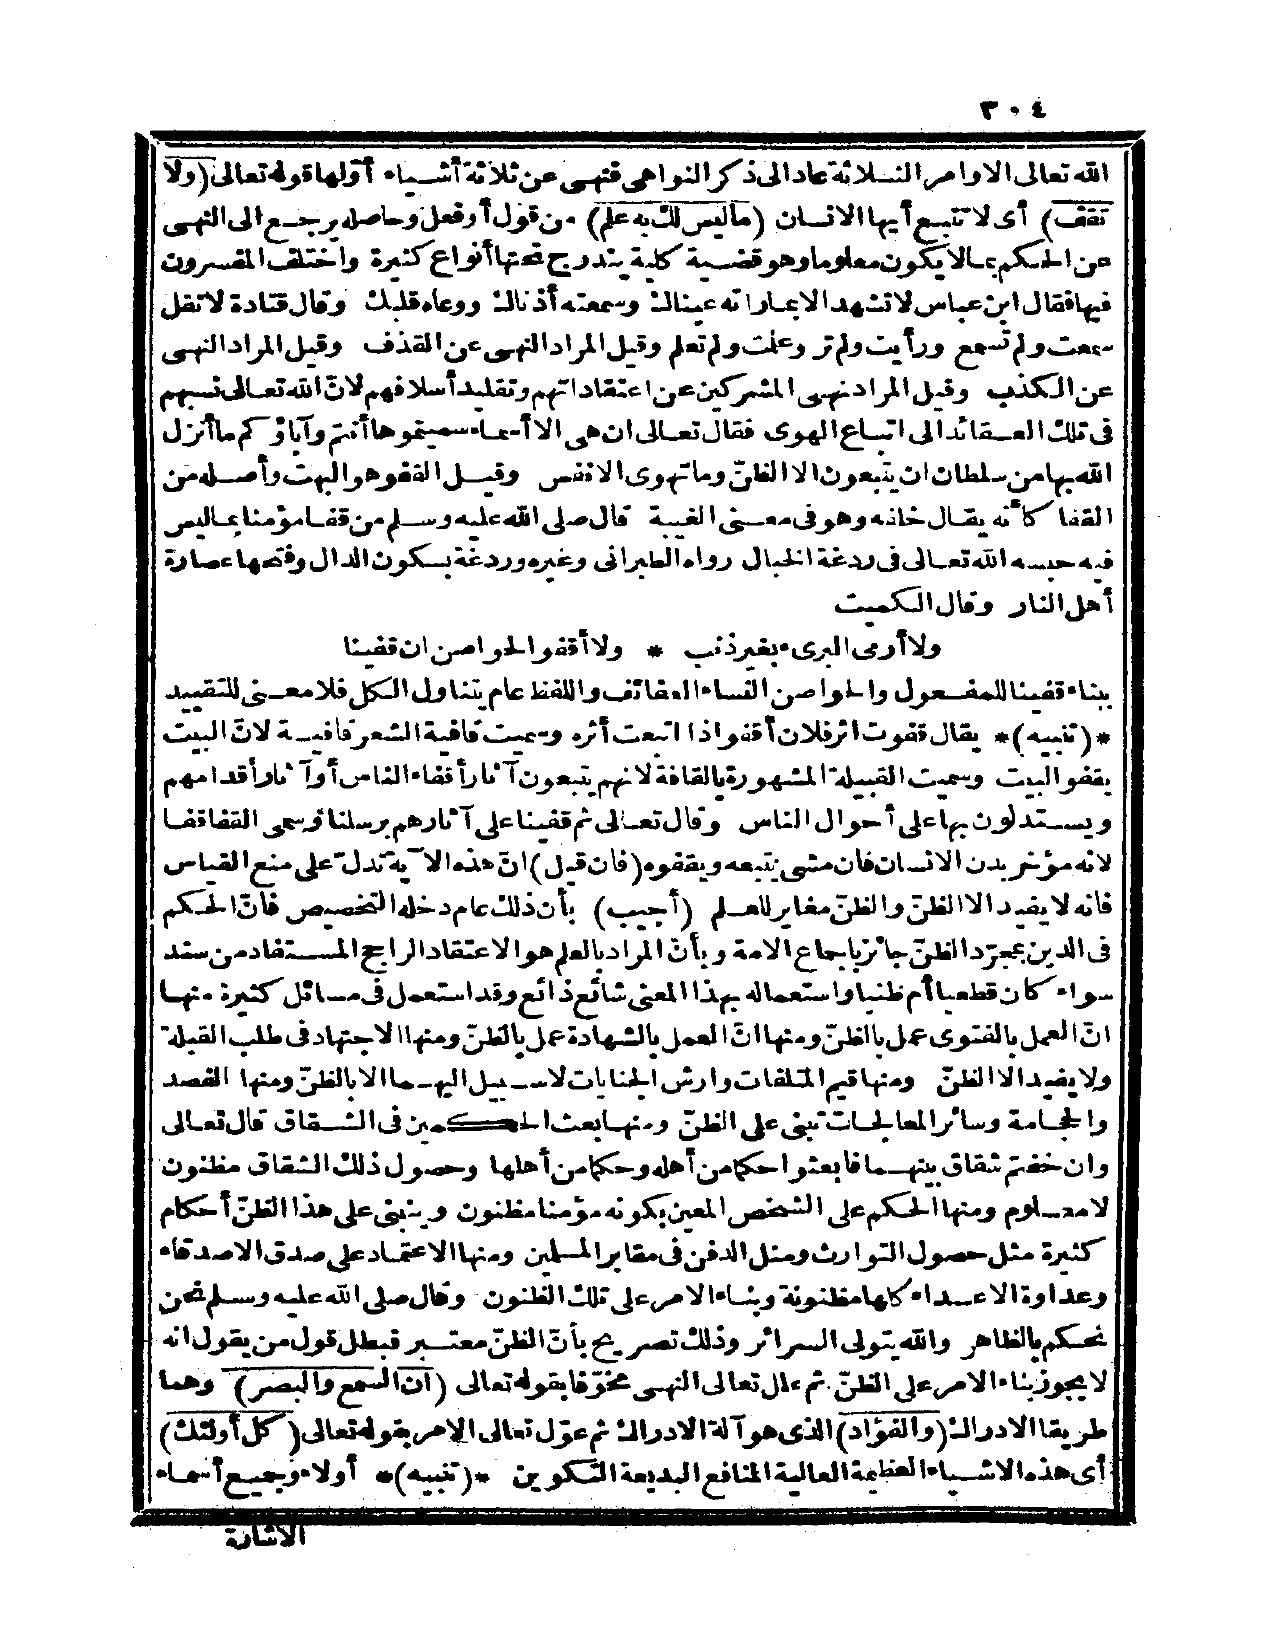 ٣٠٤
الله تعالى الاوامر الثلاثة عاد الى ذكر النواهى فنهى عن ثلاثة أشياء أوّلها قوله تعالى (ولا
تقف) أى لا تتبع أيها الانسان (ماليس لك به علم) من قول أوفعل وحاصله يرجع الى النهى
عن الحكم بمالا يكون معلوما وهو قضية كلية يندرج تحتها أنواع كثيرة واختلف المفسرون
فيها فقال ابن عباس لا تشهد الا بمارأته عيناك وسمعته أذناك ووعاه قلبك وقال قتادة لا تقل
سمعت ولم تسمع ورأيت ولم تر وعلمت ولم تعلم وقيل المراد النهى عن القذف وقيل المراد النهى
عن الكذب وقيل المراد نهى المشركين عن اعتقاداتهم وتقليد أسلافهم لانّ الله تعالى نسبهم
فى تلك العقائد الى اتباع الهوى فقال تعالى ان هى الا أسماء سميتموها أنتم وآباؤكم ما أنزل
الله بها من سلطان ان يتبعون الا الظنّ وما تهوى الانفس وقيل القفو هو البهت وأصله من
القفا كأنه يقال خلفه وهو فى معنى الغيبة قال صلى الله عليه وسلم من قفا مؤمنا بماليس
فيه حبسه الله تعالى فى ردغة الخبال رواه الطبرانى وغيره وردغة بسكون الدال وفتحها عصارة
أهل النار وقال الكميت
ولا أرمى البرىء بغير ذنب * ولا أقفو الحواصن ان قفينا
ببناء قفينا للمفعول والحواصن النساء العفائف واللفظ عام يتناول الكل فلا معنى للتقييد
*(تنبيه)* يقال قفوت اثر فلان أقفو اذا اتبعت أثره وسميت قافية الشعر قافية لانّ البيت
يقفو البيت وسميت القبيلة المشهورة بالقافة لانهم يتبعون آثار أقفاء الناس أو آثار أقدامهم
ويستدلون بها على أحوال الناس وقال تعالى ثم قفينا على آثارهم برسلنا وسمى القفا قفا
لانه مؤخر بدن الانسان فان مشى يتبعه ويقفوه (فان قيل) انّ هذه الآية تدل على منع القياس
فانه لا يفيد الا الظنّ والظنّ مغاير للعلم (أجيب) بأن ذلك عام دخله التخصيص فانّ الحكم
فى الدين بمجرّد الظنّ جائز باجماع الامة وبأنّ المراد بالعلم هو الاعتقاد الراجح المستفاد من سند
سواء كان قطعيا أم ظنيا واستعماله بهذا المعنى شائع ذائع وقد استعمل فى مسائل كثيرة منها
انّ العمل بالفتوى عمل بالظنّ ومنها انّ العمل بالشهادة عمل بالظنّ ومنها الاجتهاد فى طلب القبلة
ولا يفيد الا الظنّ ومنها قيم المتلفات وارش الجنايات لا سبيل اليهما الا بالظنّ ومنها الفصد
والحجامة وسائر المعالجات تبنى على الظنّ ومنها بعث الحكمين فى الشقاق قال تعالى
وان خفتم شقاق بينهما فابعثوا حكما من أهله وحكما من أهلها وحصول ذلك الشقاق مظنون
لا معلوم ومنها الحكم على الشخص المعين بكونه مؤمنا مظنون وينبنى على هذا الظنّ أحكام
كثيرة مثل حصول التوارث ومثل الدفن فى مقابر المسلمين ومنها الاعتماد على صدق الاصدقاء
وعداوة الاعداء كلها مظنونة وبناء الامر على تلك الظنون وقال صلى الله عليه وسلم نحن
نحكم بالظاهر والله يتولى السرائر وذلك تصريح بأنّ الظنّ معتبر فبطل قول من يقول انه
لا يجوز بناء الامر على الظنّ . ثم علل تعالى النهى مخوّفا بقوله تعالى (انّ السمع والبصر) وهما
طريقا الادراك (والفؤاد) الذى هو آلة الادراك ثم هوّل تعالى الامر بقوله تعالى (كل أولئك)
أى هذه الاشياء العظيمة العالية المنافع البديعة التكوين *(تنبيه)* أولاء وجميع أسماء
الاشارة